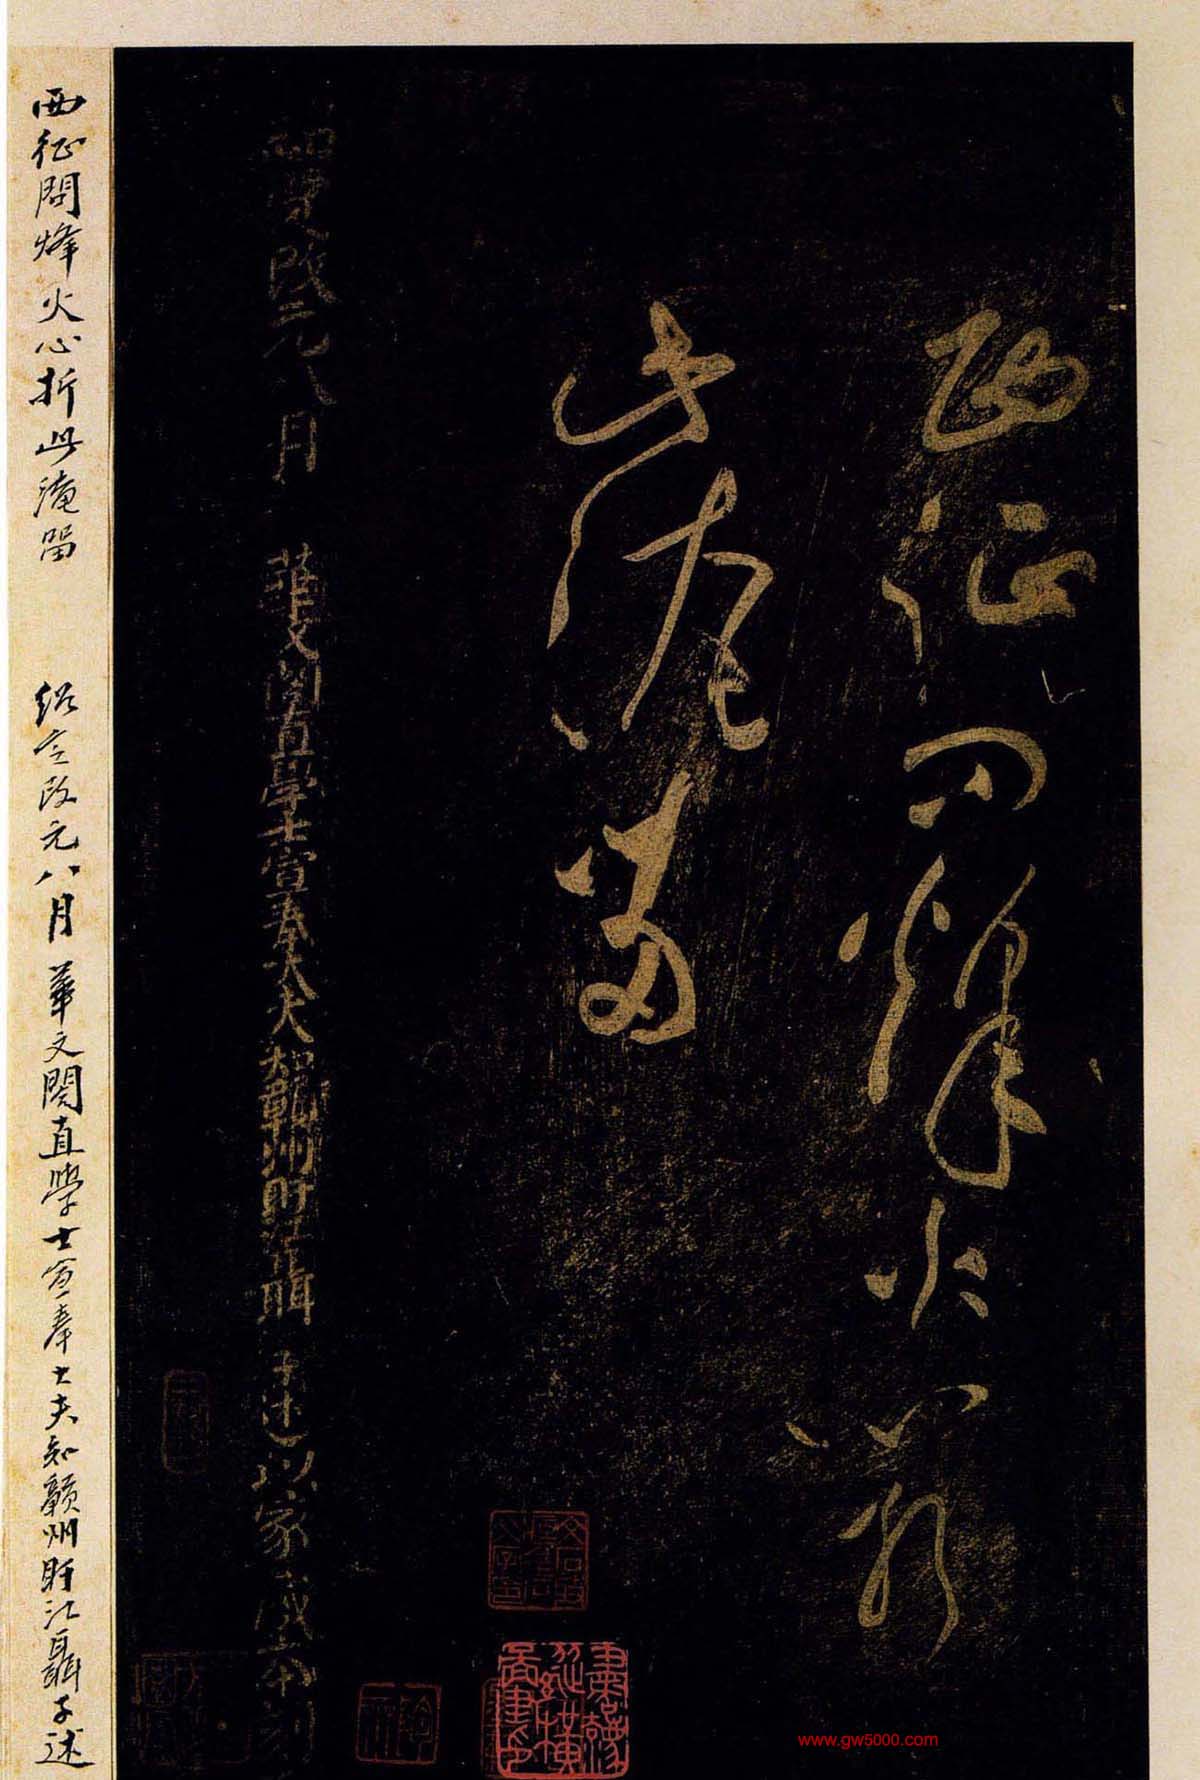 西征問烽火心折
此淹留
紹定改元八月華文閣直學士宣奉大夫知贛州盱江聶子述以家藏本刻
西征問烽火心折此淹留 紹定改元八月華文閣直學士宣奉大夫知贛州盱江聶子述
www.gw5000.com